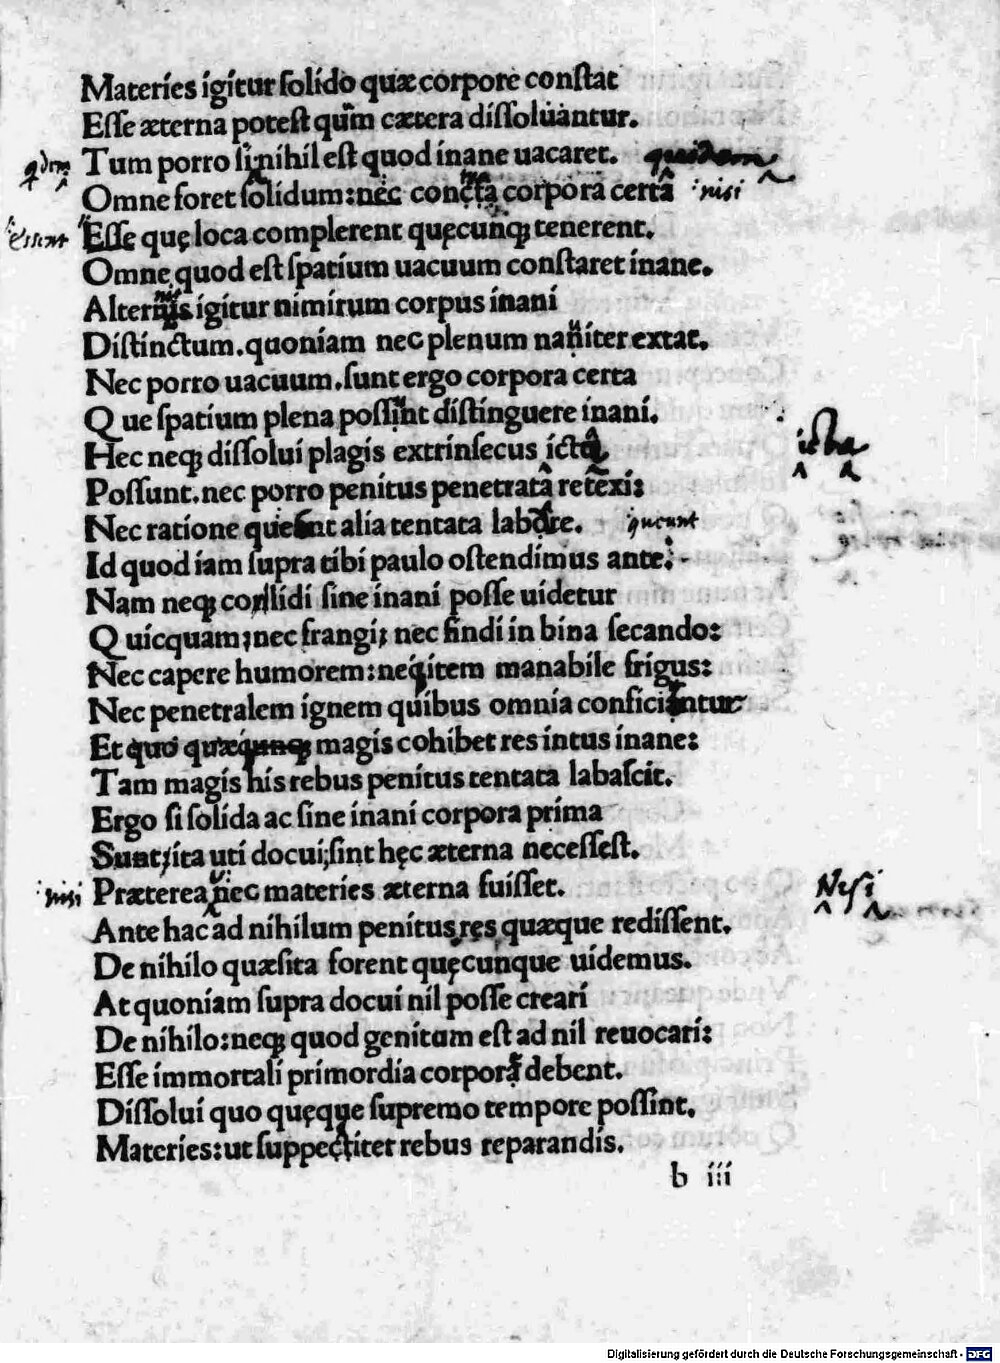 Materies igitur ſolido quæ corpore conſtat
Eſſe æterna poteſt qũm cætera diſſoluantur.
Tum porro ſi nihil eſt quod inane uacaret. quidem
Omne foret ſolidum: nec concta corpora certa nisi
essent Eſſe quę loca complerent quęcunqꝫ tenerent.
Omne quod eſt ſpatium uacuum conſtaret inane.
Alternis igitur nimirum corpus inani
Diſtinctum. quoniam nec plenum nauiter extat.
Nec porro uacuum. ſunt ergo corpora certa
Que ſpatium plena poſſint diſtinguere inani.
Hec neqꝫ diſſolui plagis extrinſecus icta icta
Poſſunt. nec porro penitus penetrata retexi:
Nec ratione queunt alia tentata labare. queunt
Id quod iam ſupra tibi paulo oſtendimus ante.
Nam neqꝫ collidi ſine inani poſſe uidetur
Quicquam; nec frangi; nec findi in bina ſecando:
Nec capere humorem: neqꝫ item manabile frigus:
Nec penetralem ignem quibus omnia conficiuntur
Et quo quæqunqꝫ magis cohibet res intus inane:
Tam magis his rebus penitus tentata labaſcit.
Ergo ſi ſolida ac ſine inani corpora prima
Sunt; ita uti docui; ſint hęc æterna neceſſeſt.
nisi Præterea nec materies æterna fuiſſet. Nisi
Ante hac ad nihilum penitus res quæque rediſſent.
De nihilo quæſita forent quęcunque uidemus.
At quoniam ſupra docui nil poſſe creari
De nihilo: neqꝫ quod genitum eſt ad nil reuocari:
Eſſe immortali primordia corpora debent.
Diſſolui quo quęque ſupremo tempore poſſint.
Materies: ut ſuppectitet rebus reparandis.
b iii
Digitalisierung gefördert durch die Deutsche Forschungsgemeinschaft - DFG